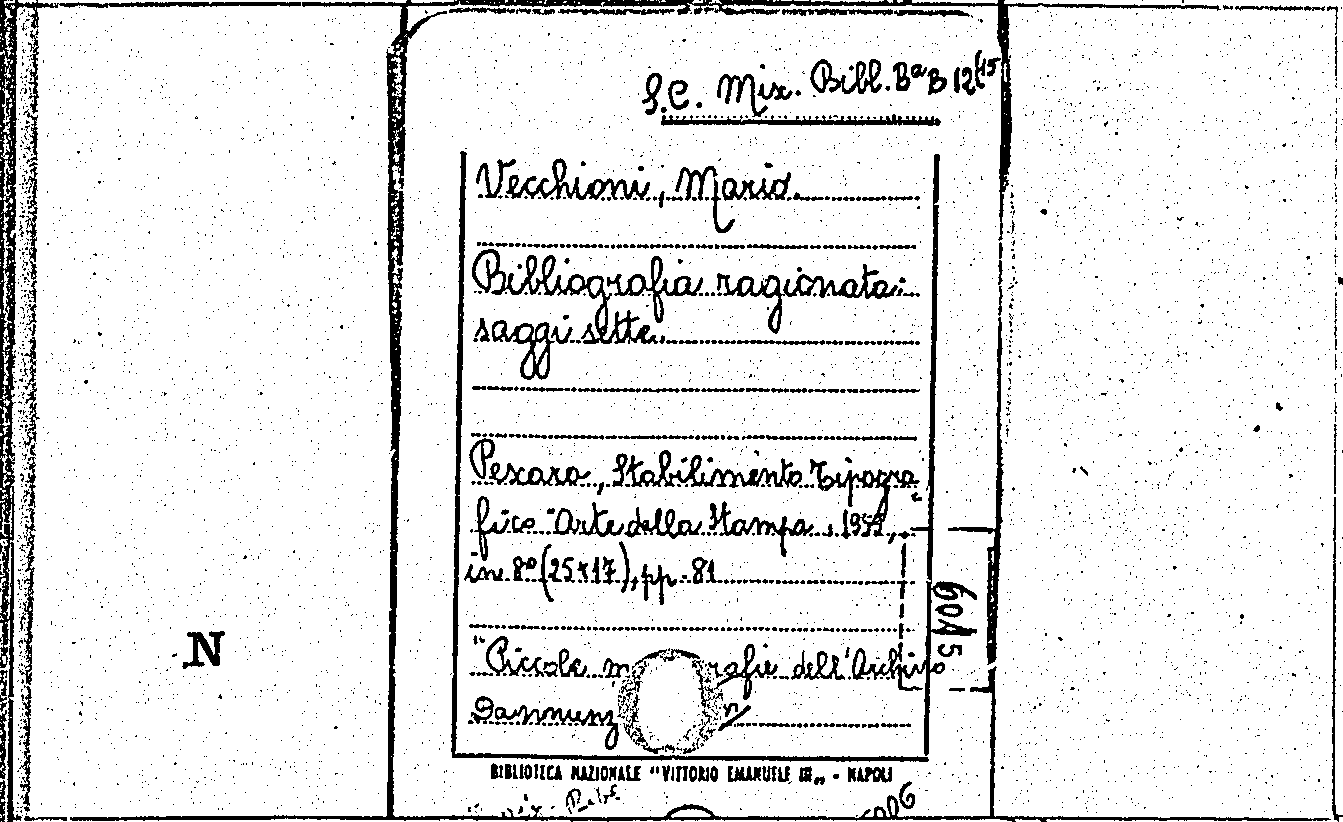 S.C. Mix. Bibl. Bª B 12(15
Vecchioni, Mario.
Bibliografia ragionata:
saggi sette.
Pesaro, Stabilimento Tipogra-
fico "Arte della Stampa, 1959,
in 8º (25x17), pp. 81
"Piccole m rafie dell'Archivo
Dannunz
6015
N
BIBLIOTECA NAZIONALE "VITTORIO EMANUELE III„ - NAPOLI